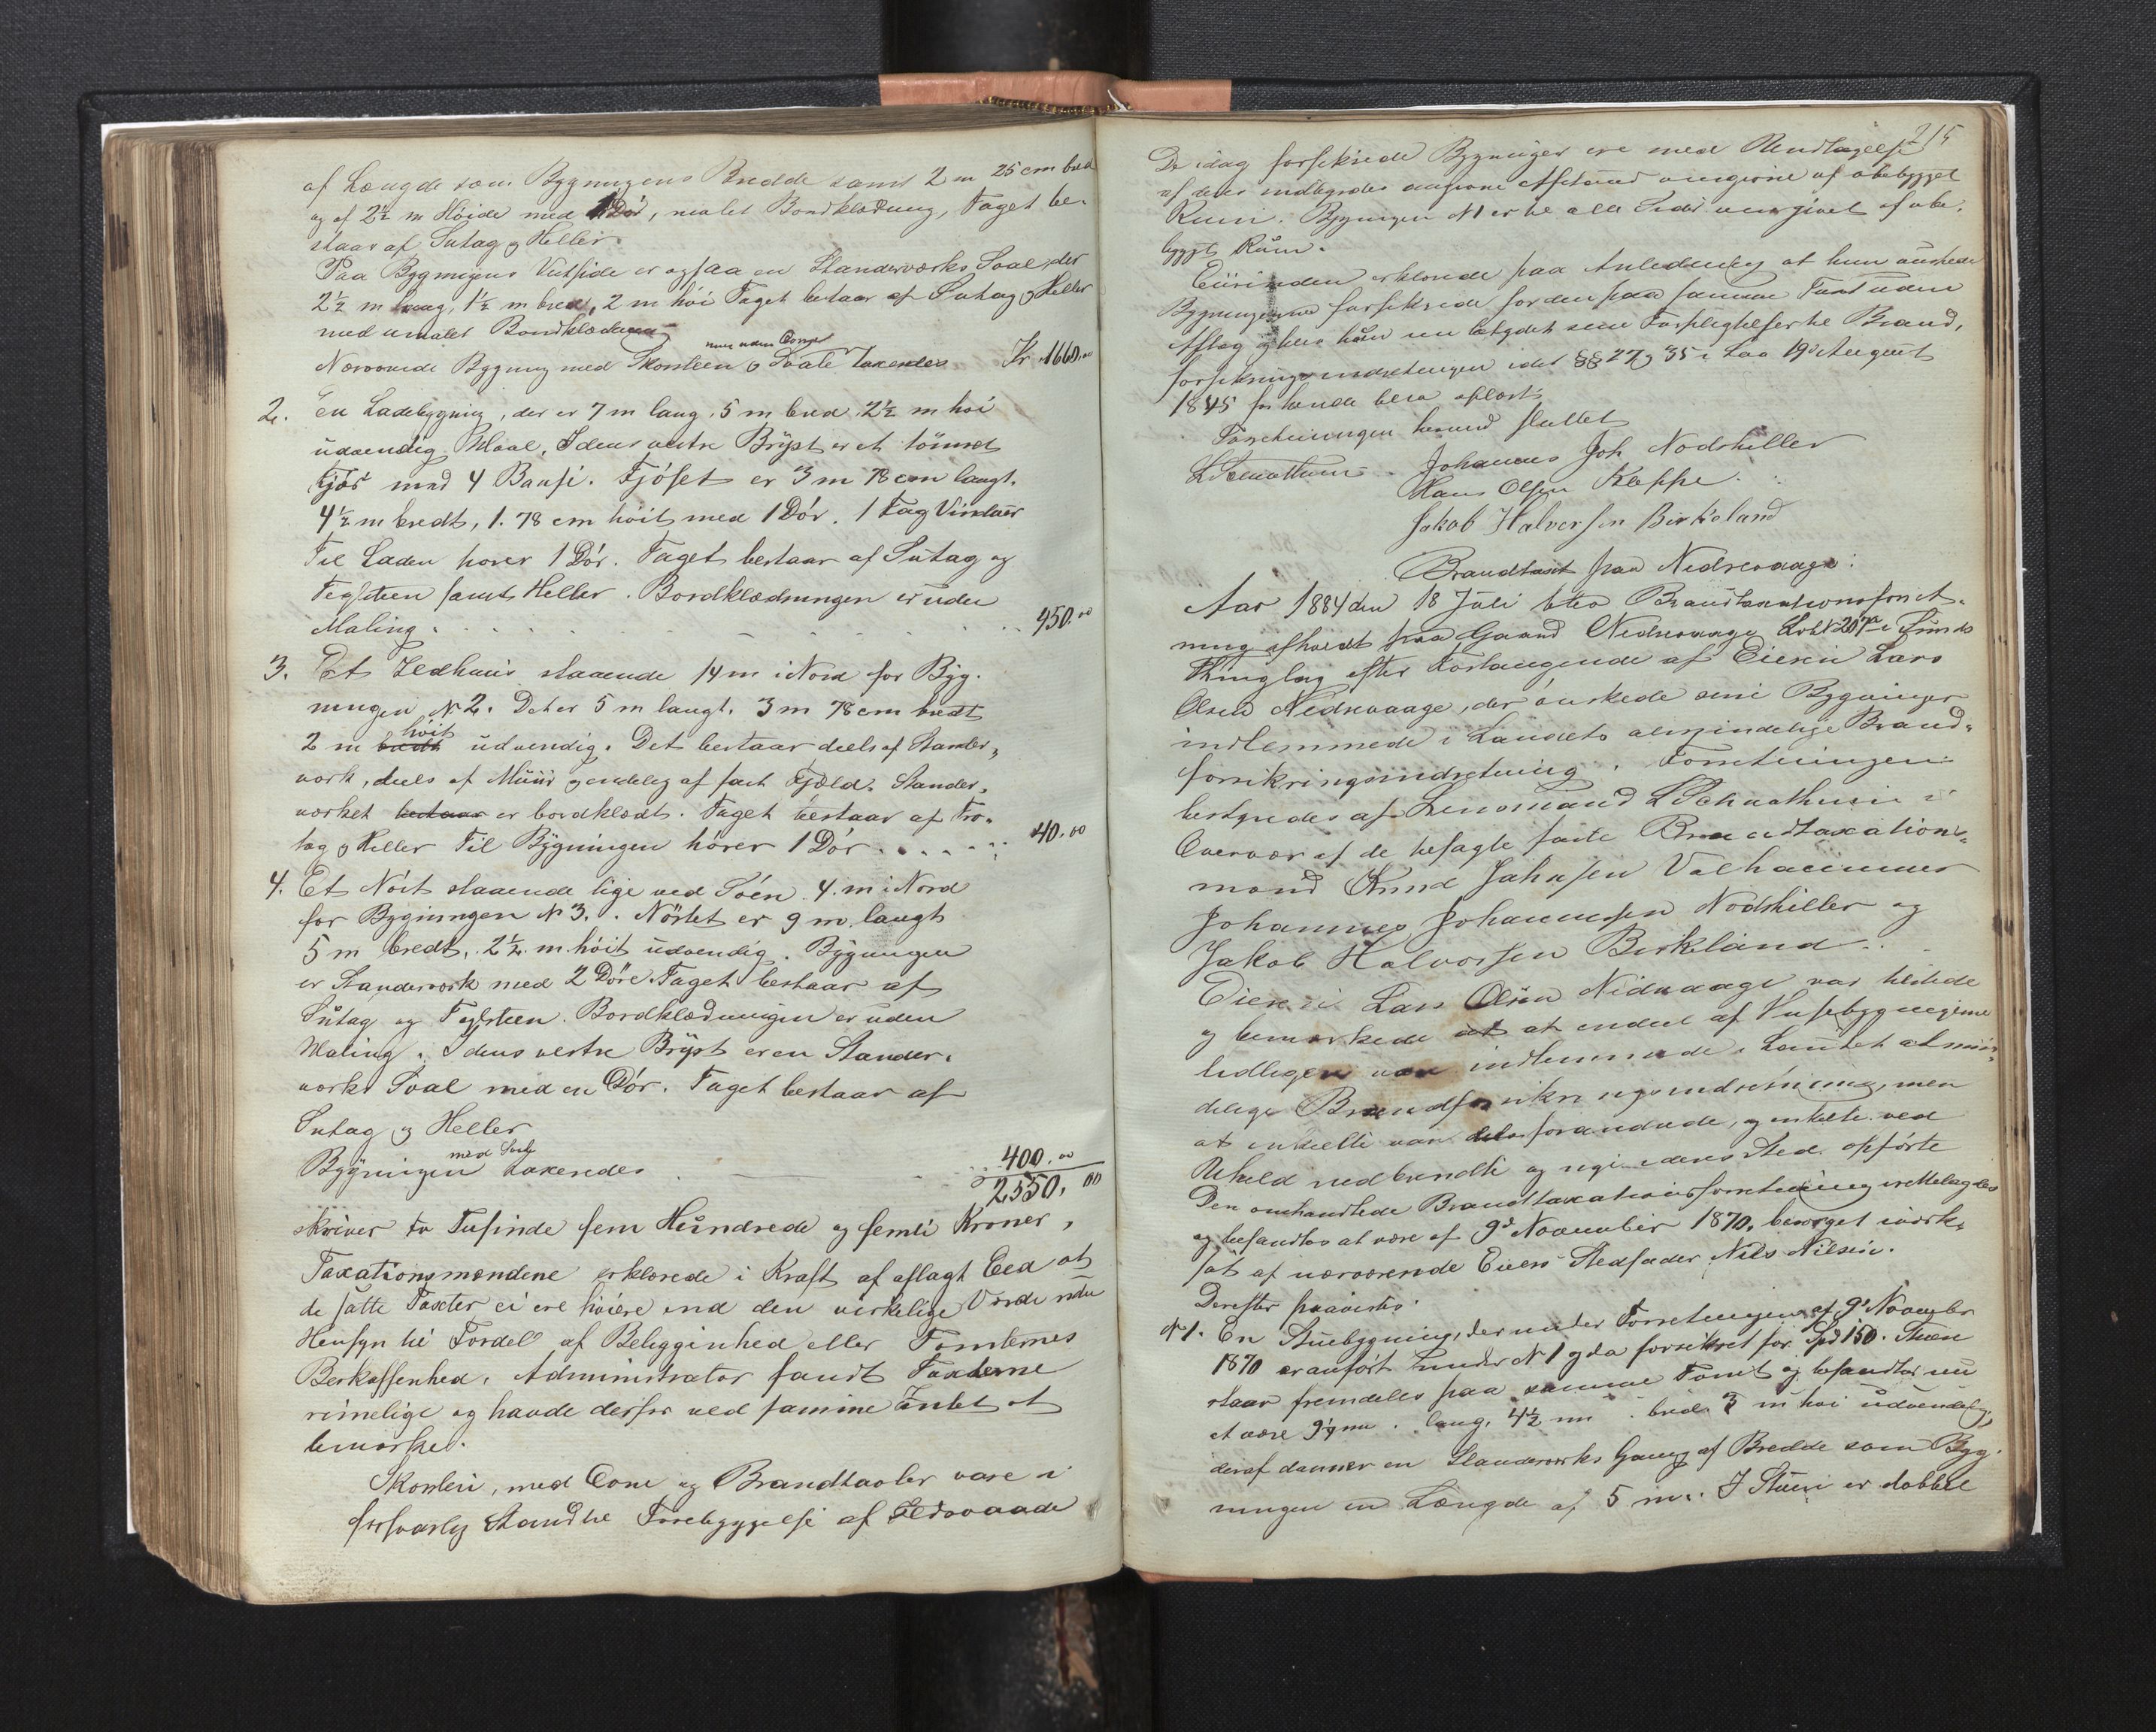 af Længde som Bygningens Bredde samt 2 m 25 cm bred
og af 2½ m Höide med 1 Dör, malet Bordklædning, Taget be-
staar af Sutag og Heller.
Paa Bygningens Vestside er ogsaa en Standerværks Sval, der
2½ m lang, 1½ m bred, 2 m höi Taget bestaar af Sutag og Heller
med umalet Bordklædning
Nærværende Bygning med Skorsteen og Svale taxeredes Kr. 1660.00
men uden Comf
2. En Ladebygning, der er 7 m lang, 5 m bred 2½ m höi
udvendig Maal. I dens vestre Bryst er et tömret
Fjös med 4 Baase. Fjöset er 3 m 78 cm langt.
4½ m bredt, 1.78 cm höit med 1 Dör. 1 Fag Vinduer
Til Laden hörer 1 Dör. Taget bestaar af Sutag og
Teglsteen samt Heller. Bordklædningen er uden
Maling. 450.00
3. Et Ildhuus staaende 14 m i Nord for Byg-
ningen N 2. Det er 5 m langt. 3 m 78 cm bredt
2 m bredt höit udvendig. Det bestaar deels af Stander-
værk, deels af Muur og endelig af fast Fjeld. Stander-
værket bestaar er bordklædt. Taget bestaar af Tro-
tag og Heller Til Bygningen hörer 1 Dör 40.00
4. Et Nöst staaende lige ved Söen. 4. m i Nord
for Bygningen N 3. Nöstet er 9 m langt
5 m bredt, 2½ m höit udvendig. Bygningen
er Standerværk med 2 Döre. Taget bestaar af
Sutag og Teglsteen. Bordklædningen er uden
Maling. I dens vestre Bryst er en Stander-
værks Sval med en Dör. Taget bestaar af
Sutag og Heller
Bygningen med Sval taxeredes 400.00
2550.00
skriver to Tusinde fem Hundrede og femti Kroner,
Taxationsmændene erklærede i Kraft af aflagt Eed at
de satte Taxter ei ere höiere end den virkelige Værdi uden
Hensyn til Fordel af Beliggenhed eller Tomternes
Beskaffenhed. Administrator fandt Taxterne
rimelige og havde derfor ved samme Intet at
bemærke.
Skorsten, med Core og Brandtavler vare i
forsvarlig Stand til Forebyggelse af Ildsvaade
215
De idag forsikrede Bygninger ere med Undtagelse
af deres indbyrdes anførte Afstand omgivne af ubebygget
Rum. Bygningen N 1 er til alle Sider omgivet af ube-
bygget Rum.
Eierinden erklærede paa Anledning at hun önskede
Bygningerne forsikrede for den paa samme Taxt uden
Afslag og blev hun nu betydet sine Forpligtelser til Brand-
forsikringsindretningen idet §§ 27 og 35 i Lov 19de August
1845 for hende blev oplæst
Forretningen hermed sluttet
Johannes Joh Nodskiller
Hans Olsen Kleppe.
Jakob Halvorsen Birkeland
Brandtaxt paa Nedrevaage:
Aar 1884 den 18 Juli blev Brandtaxationsforret-
ning afholdt paa Gaard Nedrevaage LNo 207a i Sunds
Thinglag efter Forlangende af Eieren Lars
Olsen Nedrevaage, der önskede sine Bygninger
indlemmede i Landets almindelige Brand-
forsikringsindretning. Forretningen
bestyredes af Lensmand i
Overvær af de befagte faste Brandtaxations-
mænd Knud Johnsen Valhammer
Johannes Johannessen Nodskiller og
Jakob Halvorsen Birkeland.
Eieren Lars Olsen Nedrevaage var tilstede
og bemærkede at at endeel af Husebygningerne
tidligere var indlemmede i Landets almin-
delige Brandforsikringsindretning, men
at enkelte vare forandrede, og enkelte ved
Uheld nedbrændte og nye i deres Sted opförte
Den omhandlede Brandtaxationsforretning irettelagdes
og befandtes at være af 9de November 1870, besörget iværk-
sat af nærværende Eiers Stedfader Nils Nilsen.
Derefter prævertes
N 1. En Stuebygning, der under Forretningen af 9de November
1870 er anfört under N 1 og da forsikret for Spd 150. Stuen
staar fremdeles paa samme Tomt og befandtes nu
at være 9¼ m lang. 4½ m bred 3 m höi udvendig,
deraf danner en Standerværks Gang af Bredde som Byg-
ningen en Længde af 5 m. I Stuen er dobbelt